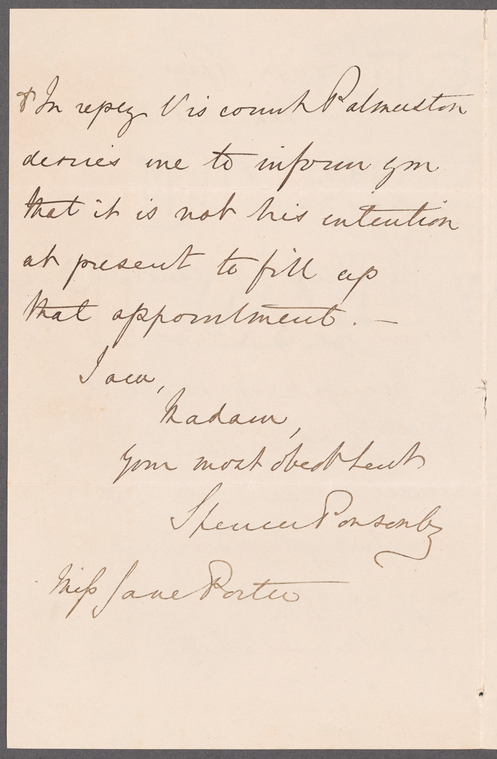 & In reply Viscount Palmerston
desires me to inform you
that it is not his intention
at present to fill up
that appointment. —
I am,
Madam,
your most obedt servt
Spencer Ponsonby
Miss Jane Porter